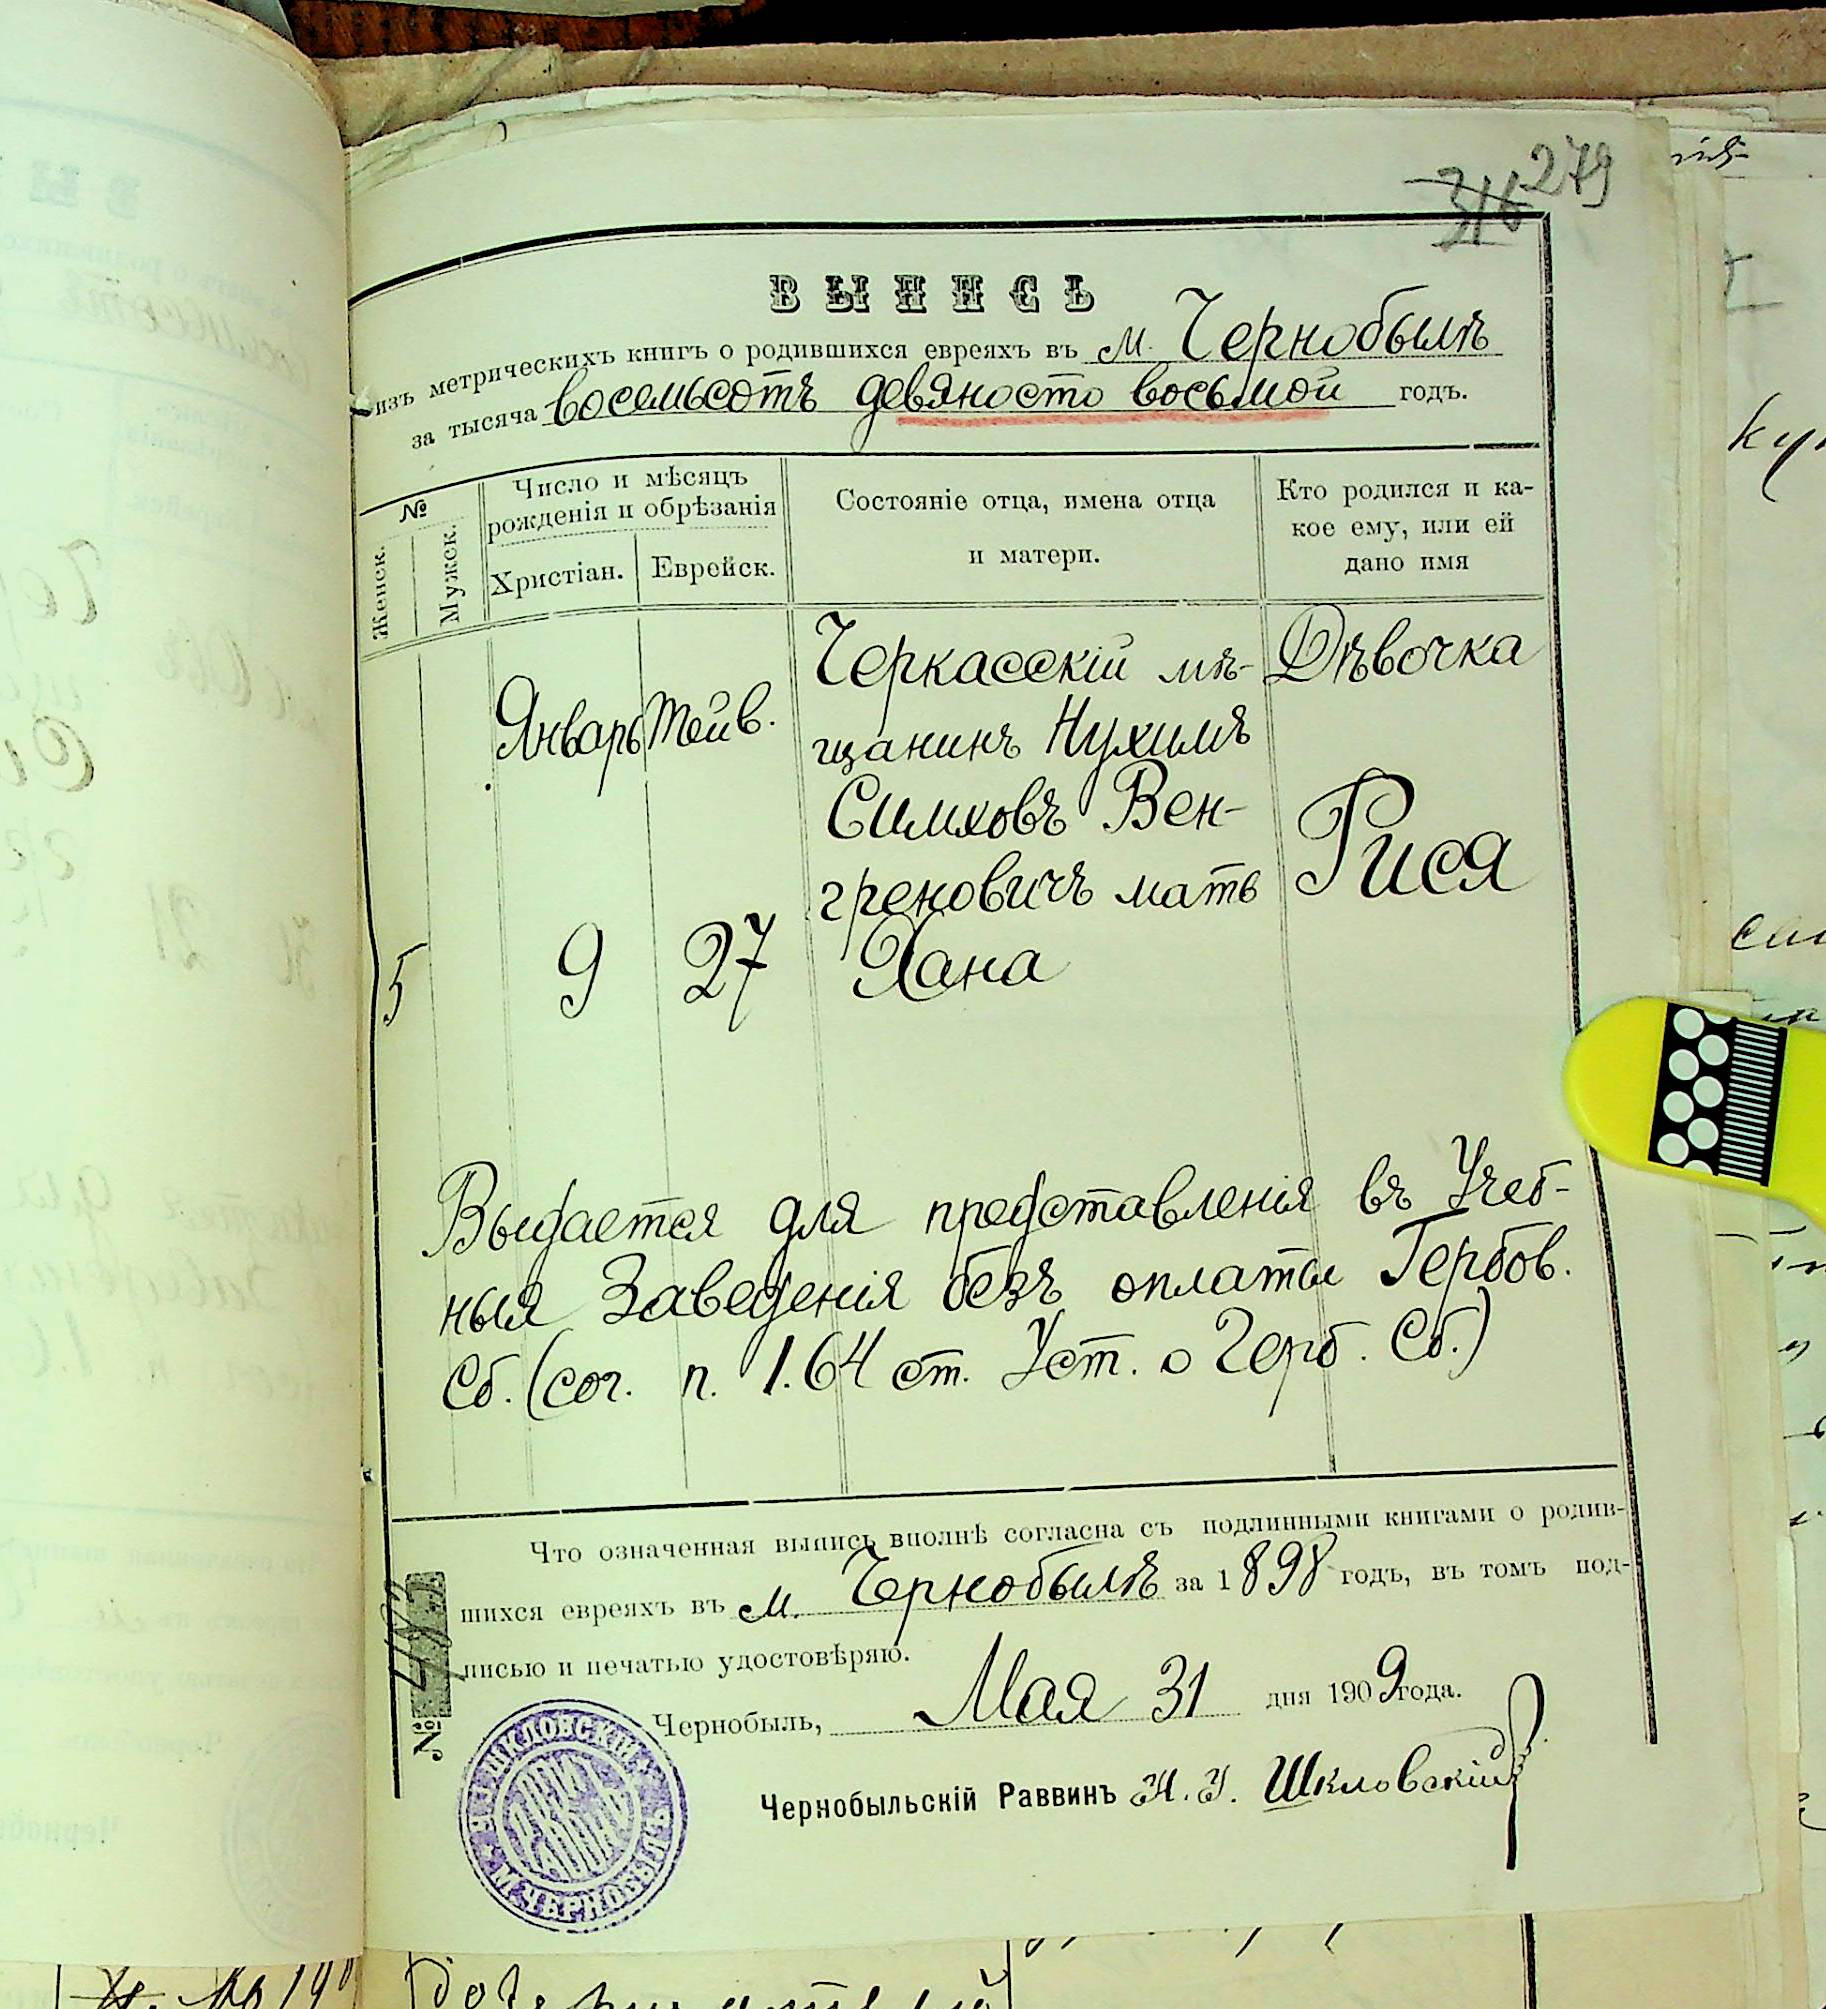 279
316
ВЫПИСЬ
изъ метрическихъ книгъ о родившихся евреяхъ въ м. Чернобылѣ
за тысяча восемьсотъ девяносто восьмой годъ.
№
Женск.
Мужск.
Число и мѣсяцъ
рожденія и обрѣзанія
Христіан.
Еврейск.
Состояніе отца, имена отца
и матери.
Кто родился и ка-
кое ему, или ей
дано имя
5
Январь
9
Тейв.
27
Черкасскій мѣ-
щанинъ Нухимъ
Симховъ Вен-
греновичъ мать
Хана
Дѣвочка
Рися
Выдается для представленія въ Учеб-
ныя Заведенія безъ оплаты Гербов.
Сб. (сог. п. 1. 64 ст. Уст. о Герб. Сб.)
Что означенная выпись вполнѣ согласна съ подлинными книгами о родив-
шихся евреяхъ въ м. Чернобылѣ за 1898 годъ, въ томъ под-
писью и печатью удостовѣряю.
№ 482
Чернобыль, Мая 31 дня 1909 года.
Чернобыльскій Раввинъ Н. У. Шкловскій
ШКЛОВСКІЙ
М. ЧЕРНОБЫЛЬ